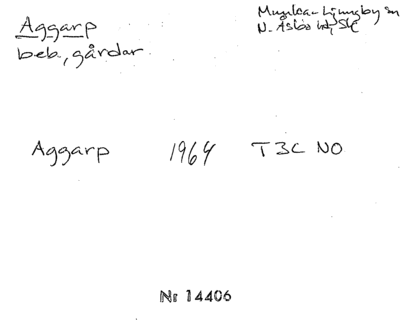 Aggarp
Munka-Ljungby sn
beb., gårdar
N. Åsbo hd, Sk
Aggarp 1964 T3C NO
Nr 14406